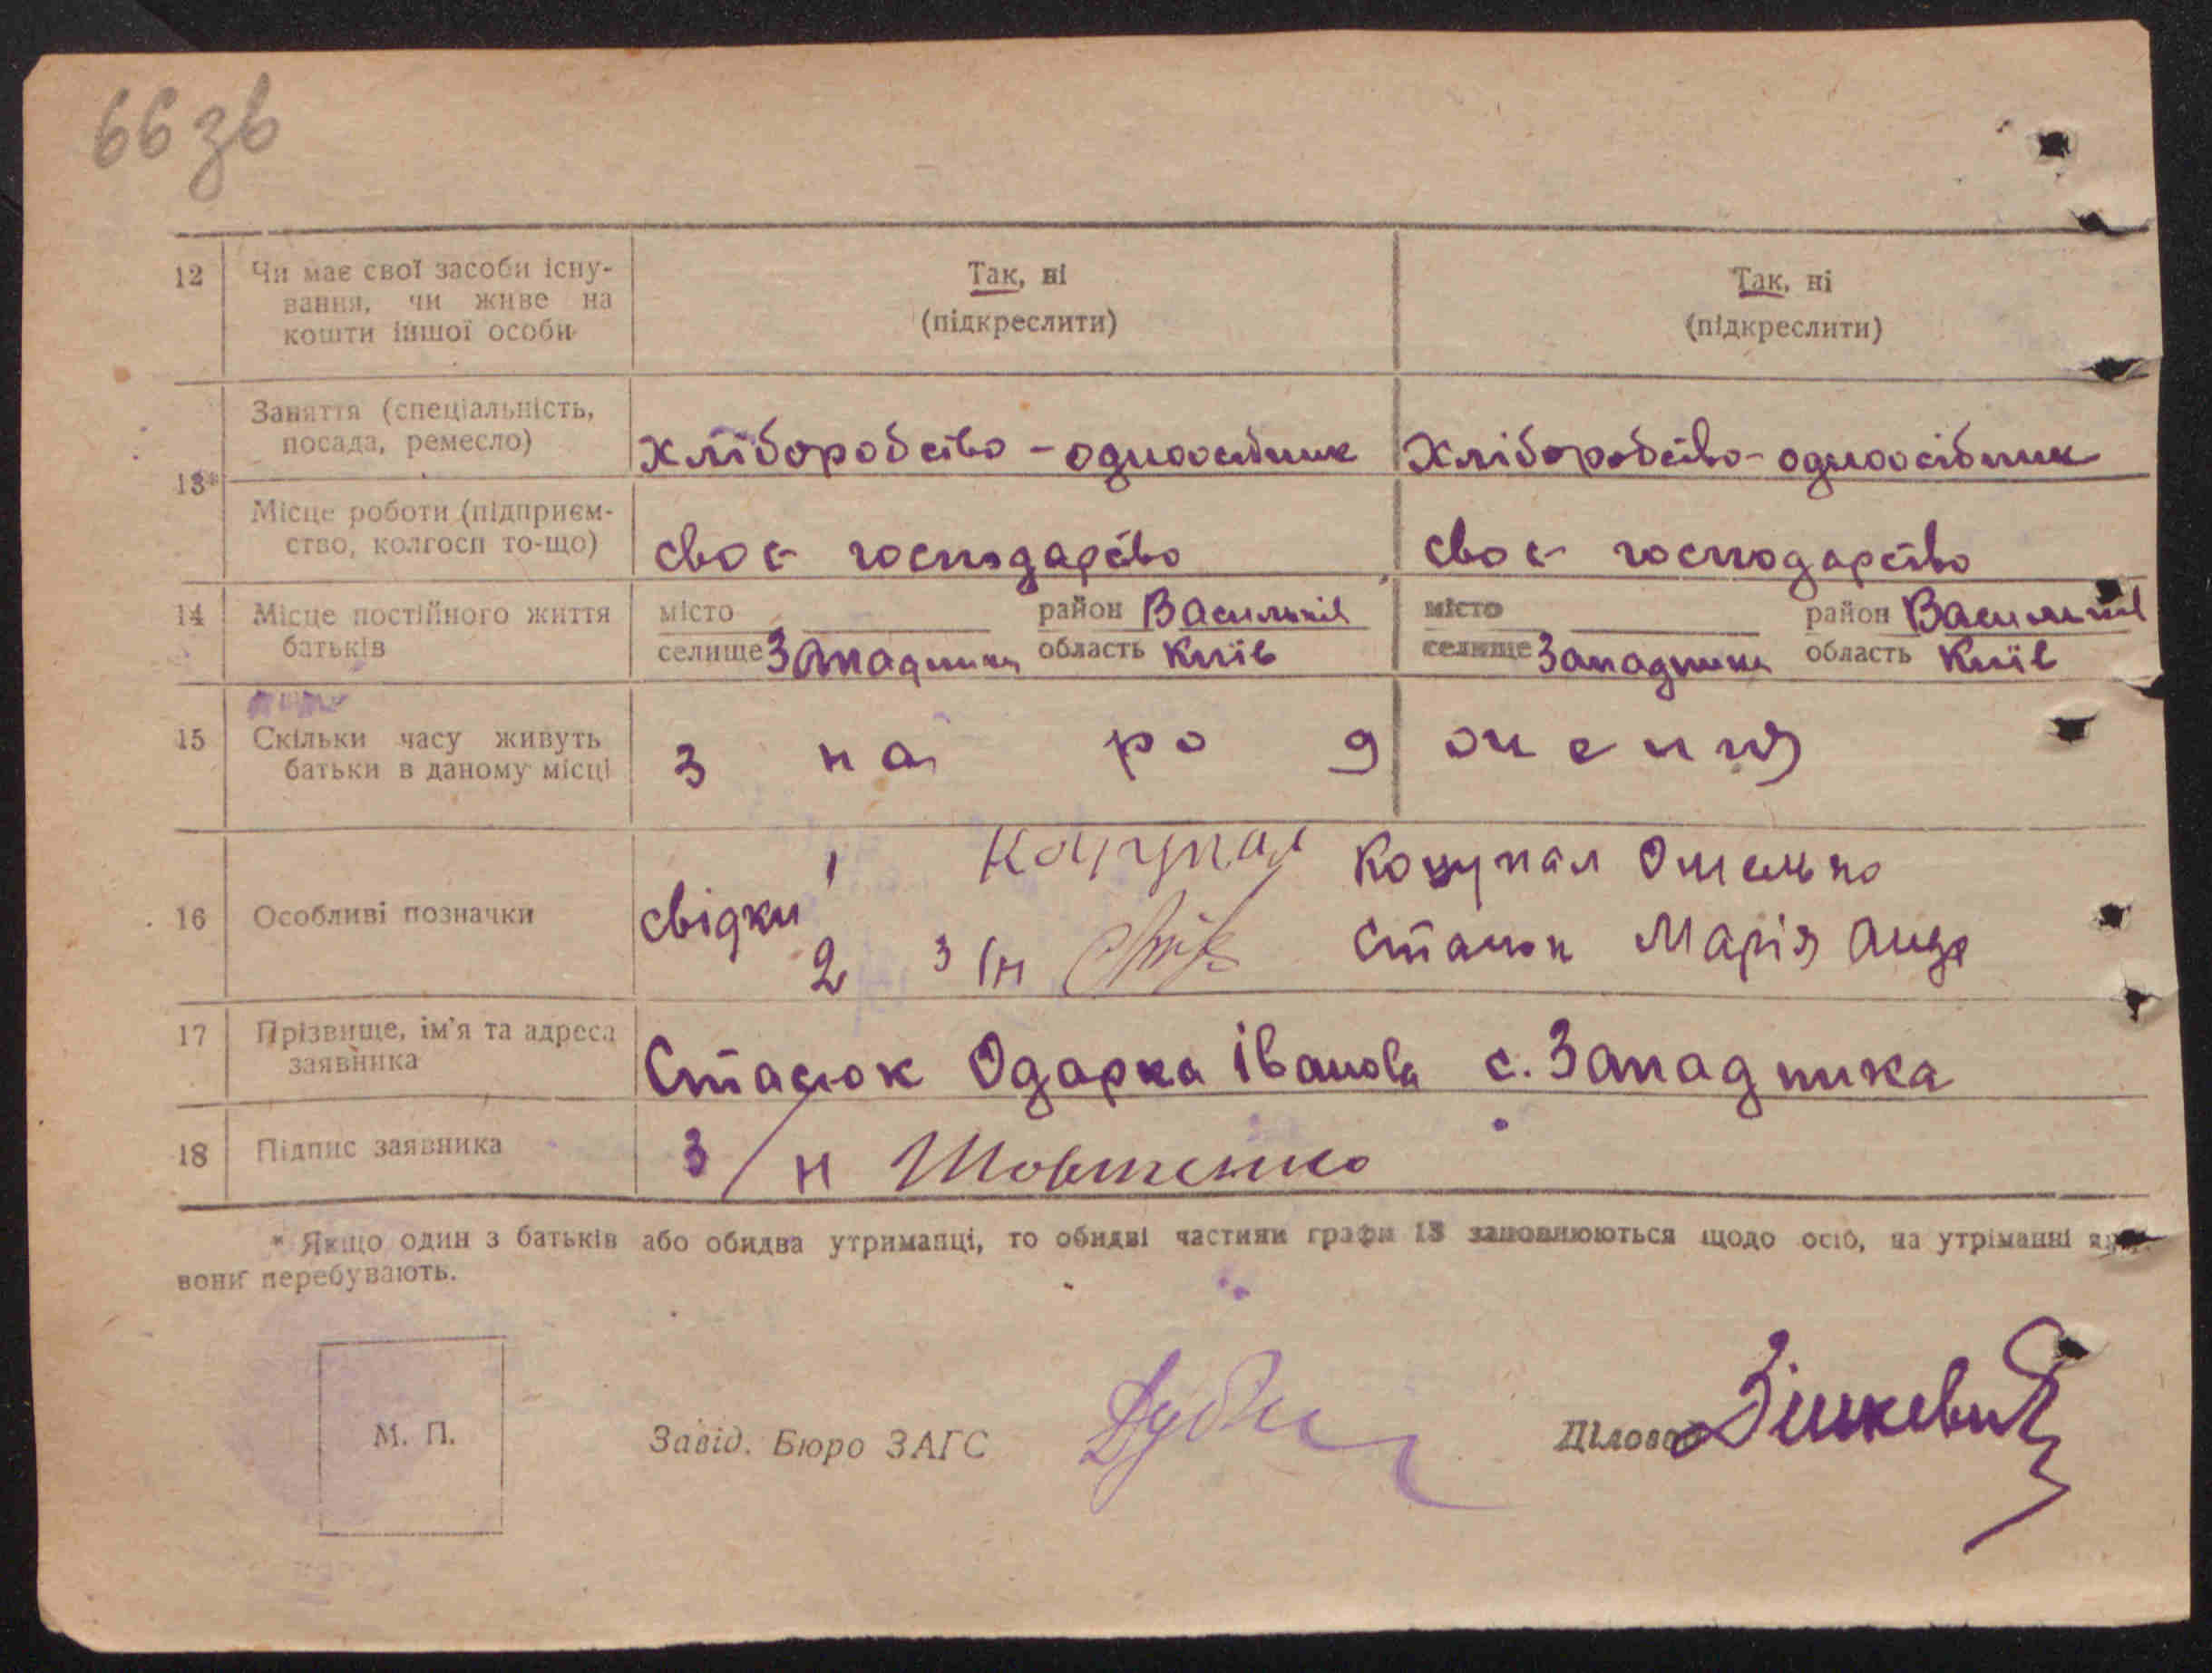 66 зв
12 Чи має свої засоби існу- Так, ні Так, ні
вання, чи живе на
кошти іншої особи (підкреслити) (підкреслити)
Заняття (спеціальність,
посада, ремесло) Хліборобство - одноосібник Хліборобство - одноосібник
13*
Місце роботи (підприєм-
ство, колгосп то-що) своє господарство своє господарство
14 Місце постійного життя місто район Васильків місто район Васильків
батьків селище Западинка область Київ селище Западинка область Київ
15 Скільки часу живуть
батьки в даному місці з на ро д женния
Коцупал Коцупал Омелько
16 Особливі позначки свідки 1
2 з/н Стасюк Марія Андр
17 Прізвище, ім'я та адреса
заявника Стасюк Одарка Іванова с. Западинка
18 Підпис заявника з/н Шовтенко
* Якщо один з батьків або обидва утриманці, то обидві частини графи 13 заповнюються щодо осіб, на утріманні яких
вони перебувають.
М. П. Завід. Бюро ЗАГС Діловод Зінкевич